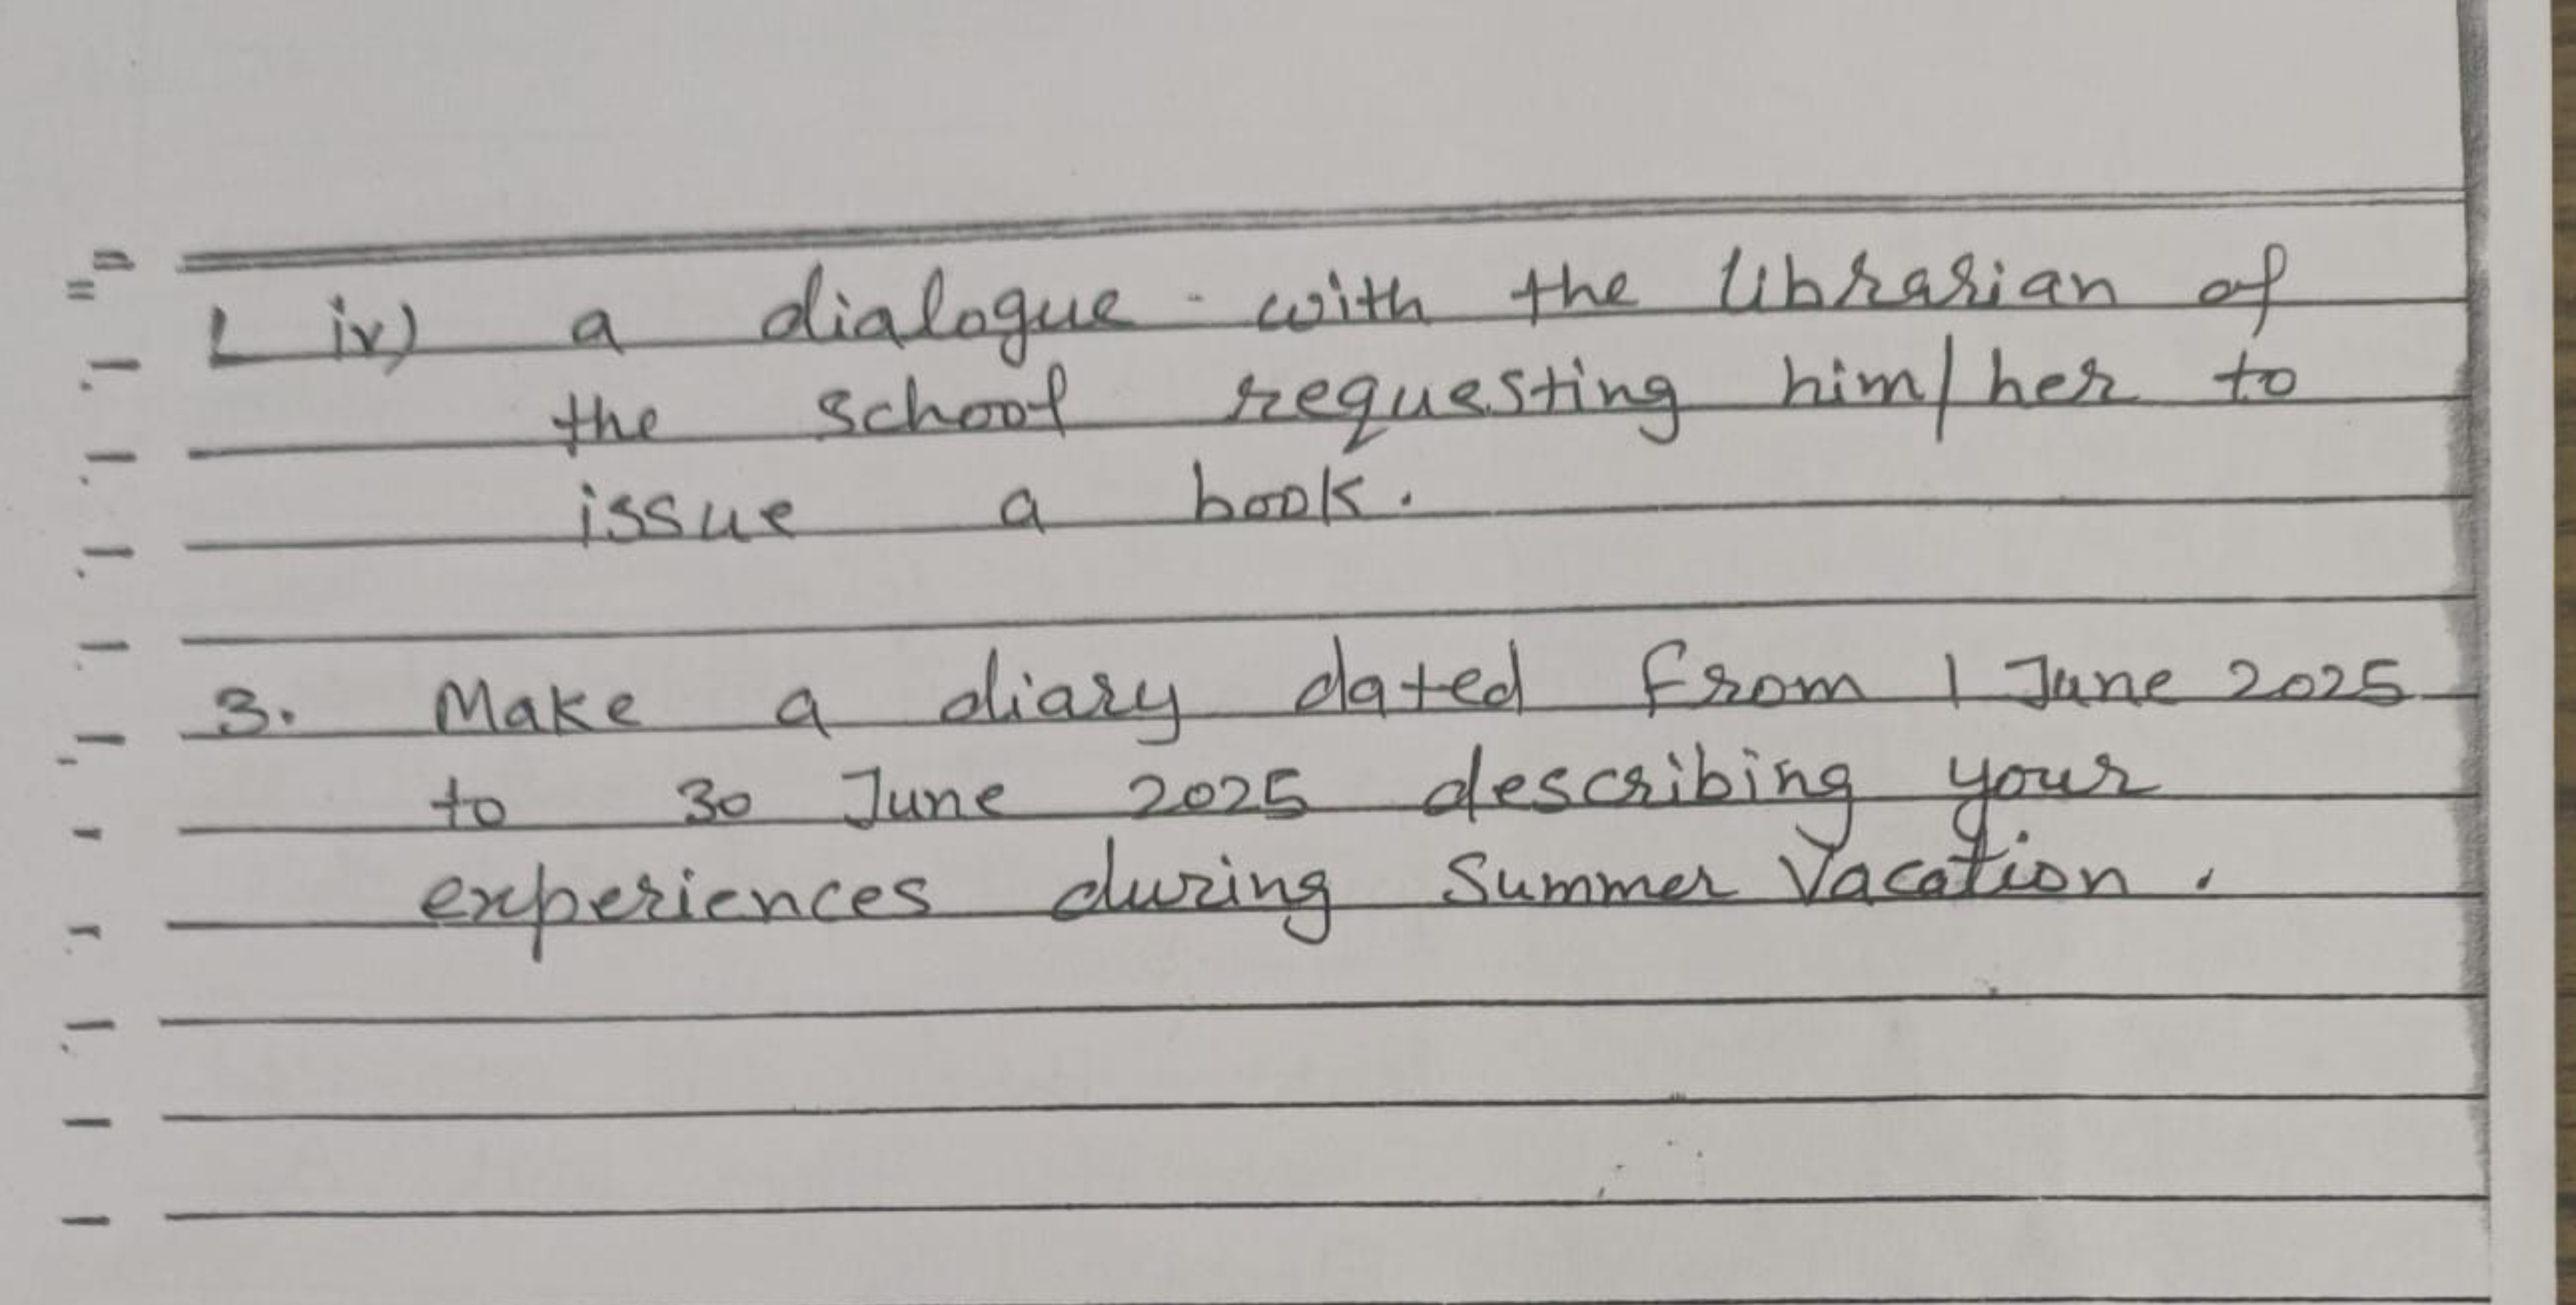 iv) a dialogue - with the librarian of
the school requesting him/her to
issue a book.
3. Make a diary dated from 1 June 2025
to 30 June 2025 describing your
experiences during Summer Vacation.